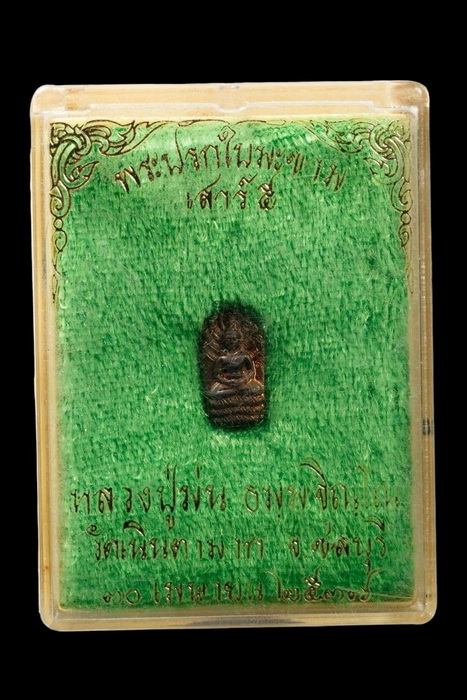 พระปรกใบมะขาม
เสาร์ ๕
หลวงปู่ม่น ธมฺมจิณฺโณ
วัดเนินตามาก จ.ชลบุรี
๓๐ เมษายน ๒๕๓๙